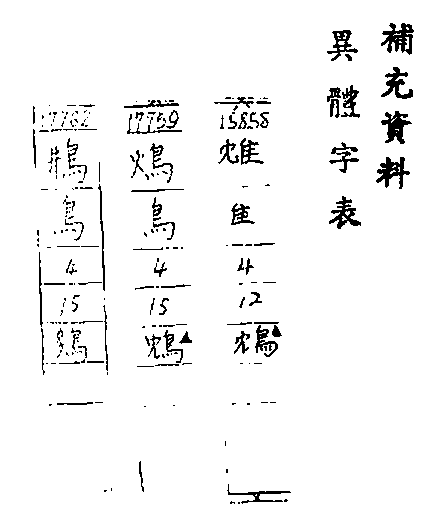 補充資料
異體字表
15858
隹
4
12
鴆▲
17759
鳥
4
15
鴆▲
17762
鳥
4
15